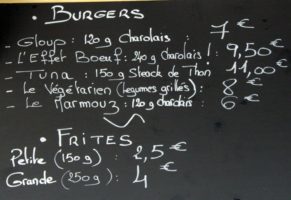 • BURGERS
- Gloup: 120g Charolais : 7 €
- L'Effet Boeuf: 240g charolais ! : 9,50 €
- Tuna : 150g Steack de Thon 11,00 €
- Le Végétarien (légumes grillés) : 8 €
- Le Marmouz : 120g charolais : 6 €
• FRITES
Petite (150g) : 2,5 €
Grande (250g) : 4 €